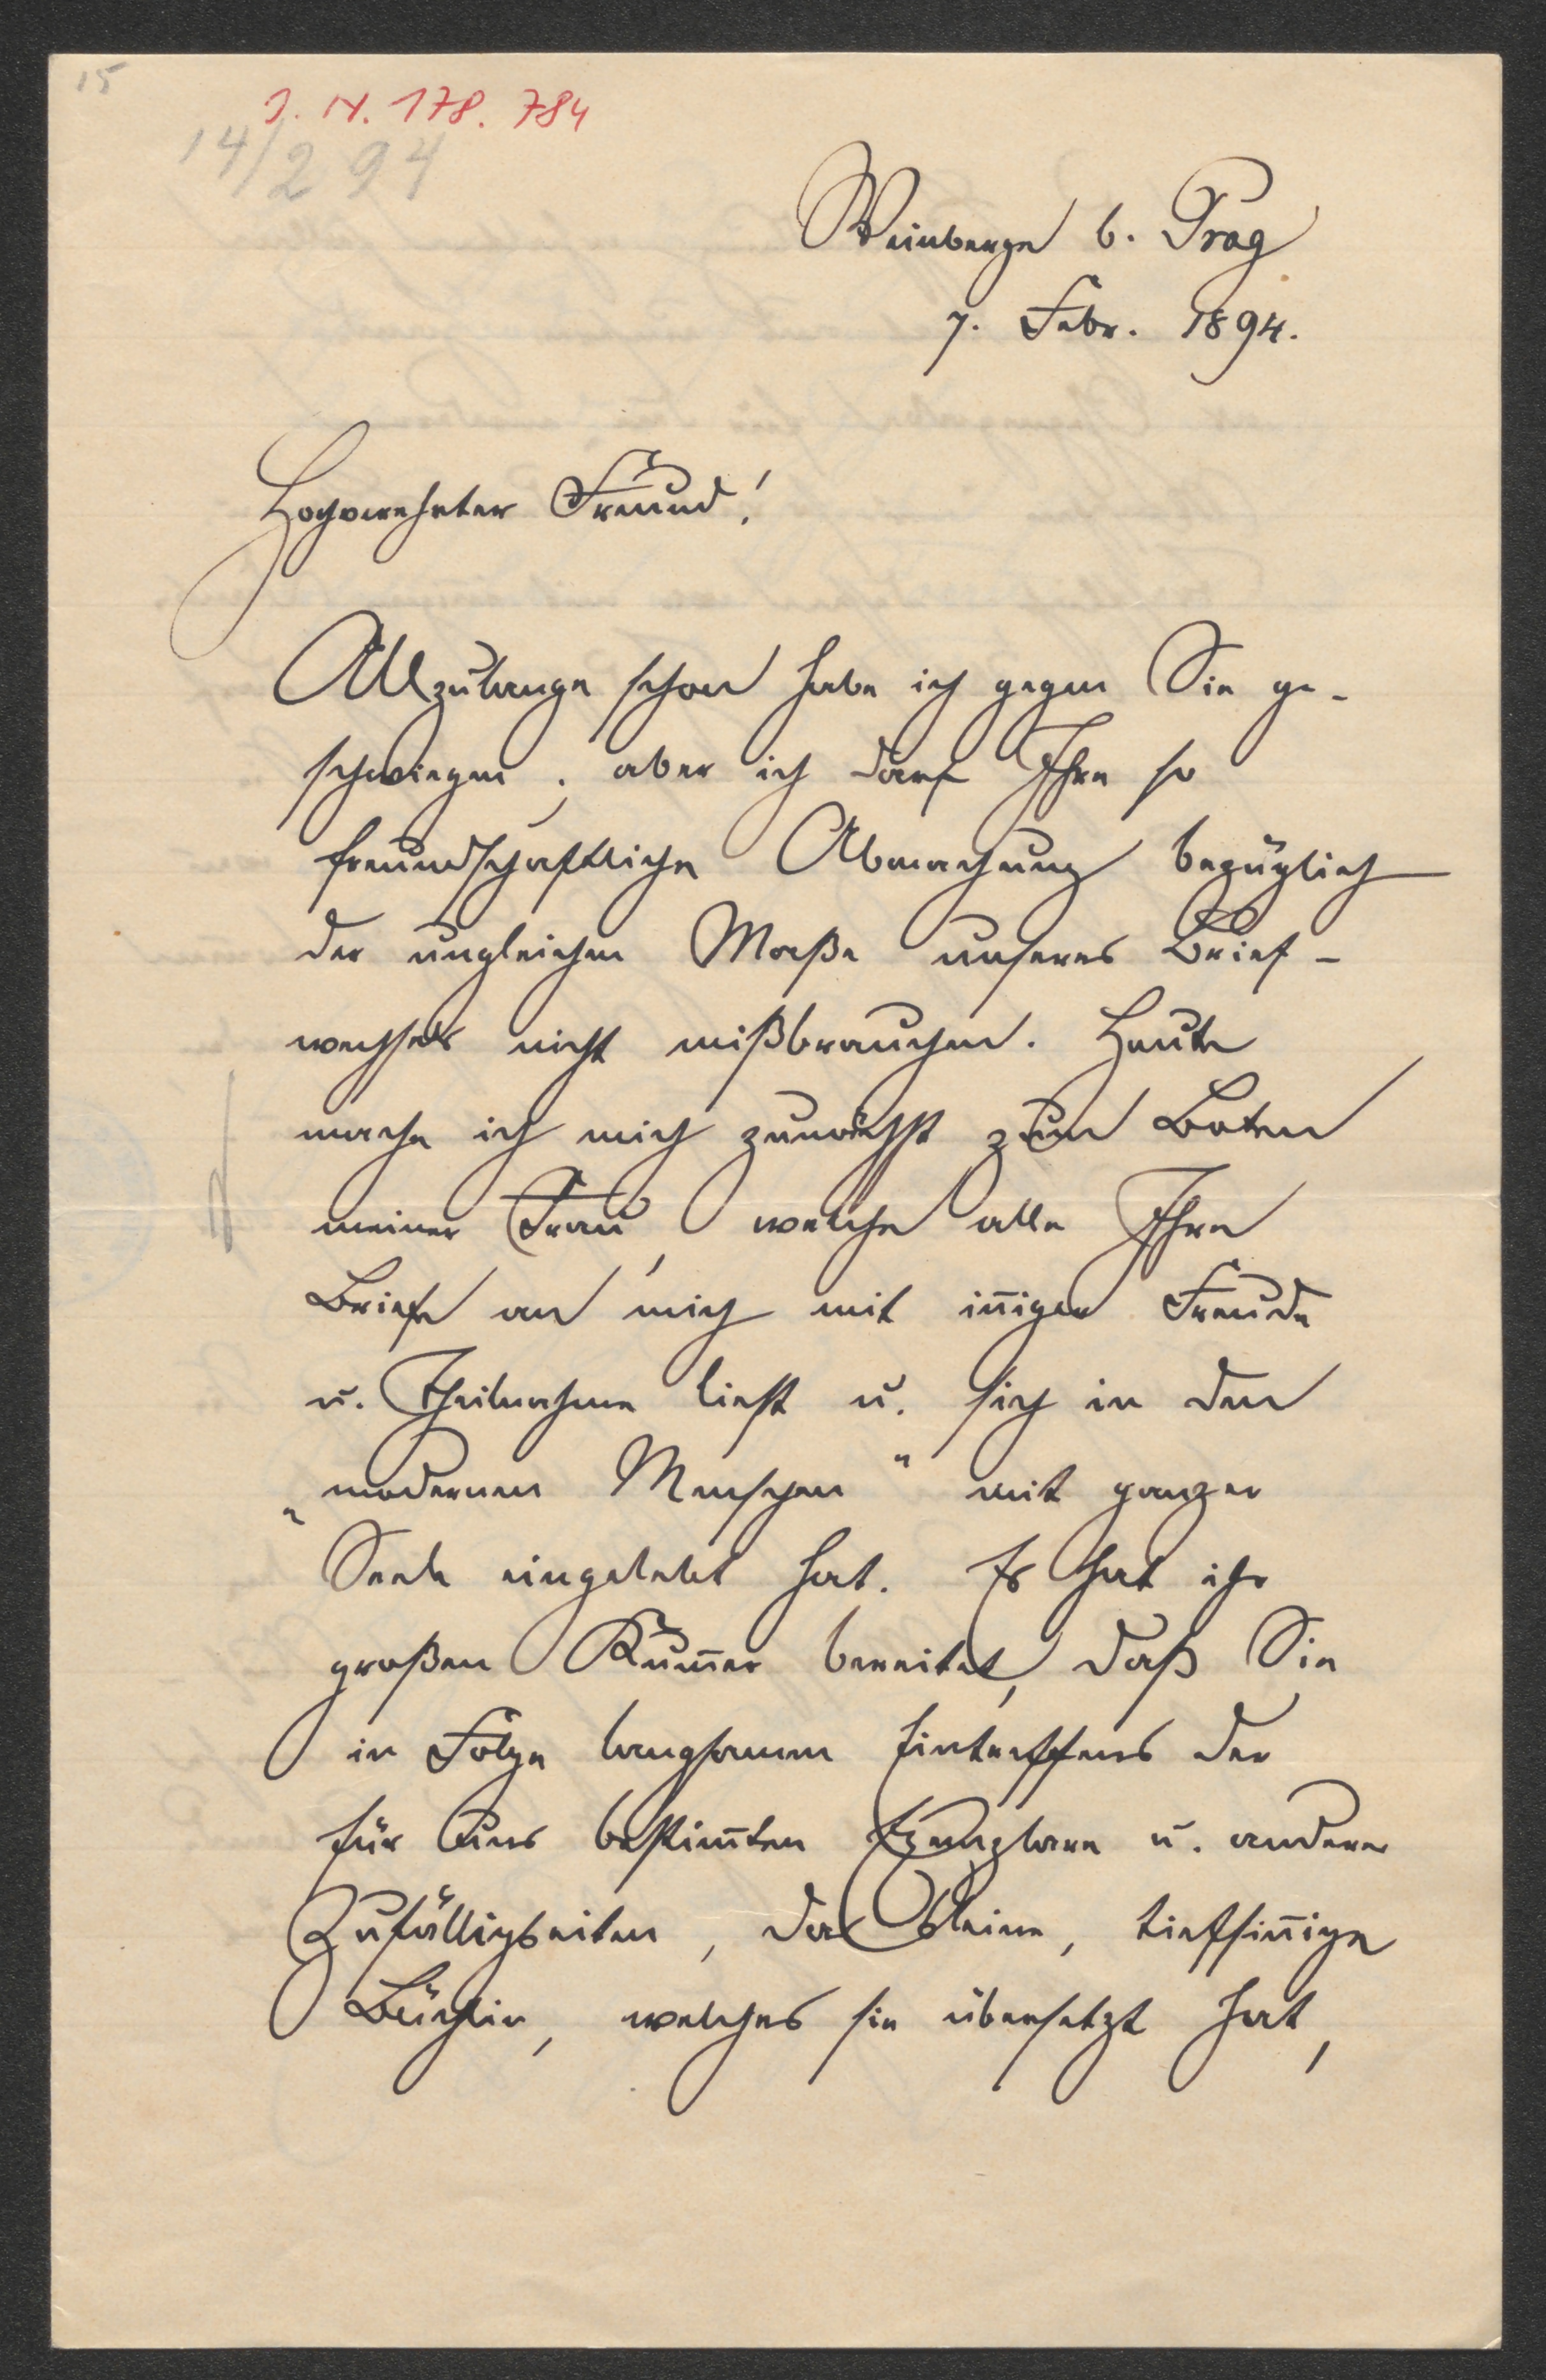 15
J. N. 178.784
14/2 94
Weinberge b. Prag
7. Febr. 1894.
Hochverehrter Freund!
Allzulange schon habe ich gegen Sie ge-
schwiegen; aber ich darf Ihre so
freundschaftliche Abmachung bezüglich
der ungleichen Maße unseres Brief-
wechsels nicht mißbrauchen. Heute
mache ich mich zunächst zum Boten
meiner Frau, welche alle Ihre
Briefe an mich mit in̅iger Freude
u. Theilnahme liest u. sich in den
„modernen Menschen“ mit ganzer
Seele eingelebt hat. Es hat ihr
großen Kum̅er bereitet, daß Sie
in Folge langsamen Eintreffens der
für uns bestim̅ten Exemplare u. anderer
Zufälligkeiten, das kleine, tiefsin̅ige
Büchlein, welches sie übersetzt hat,